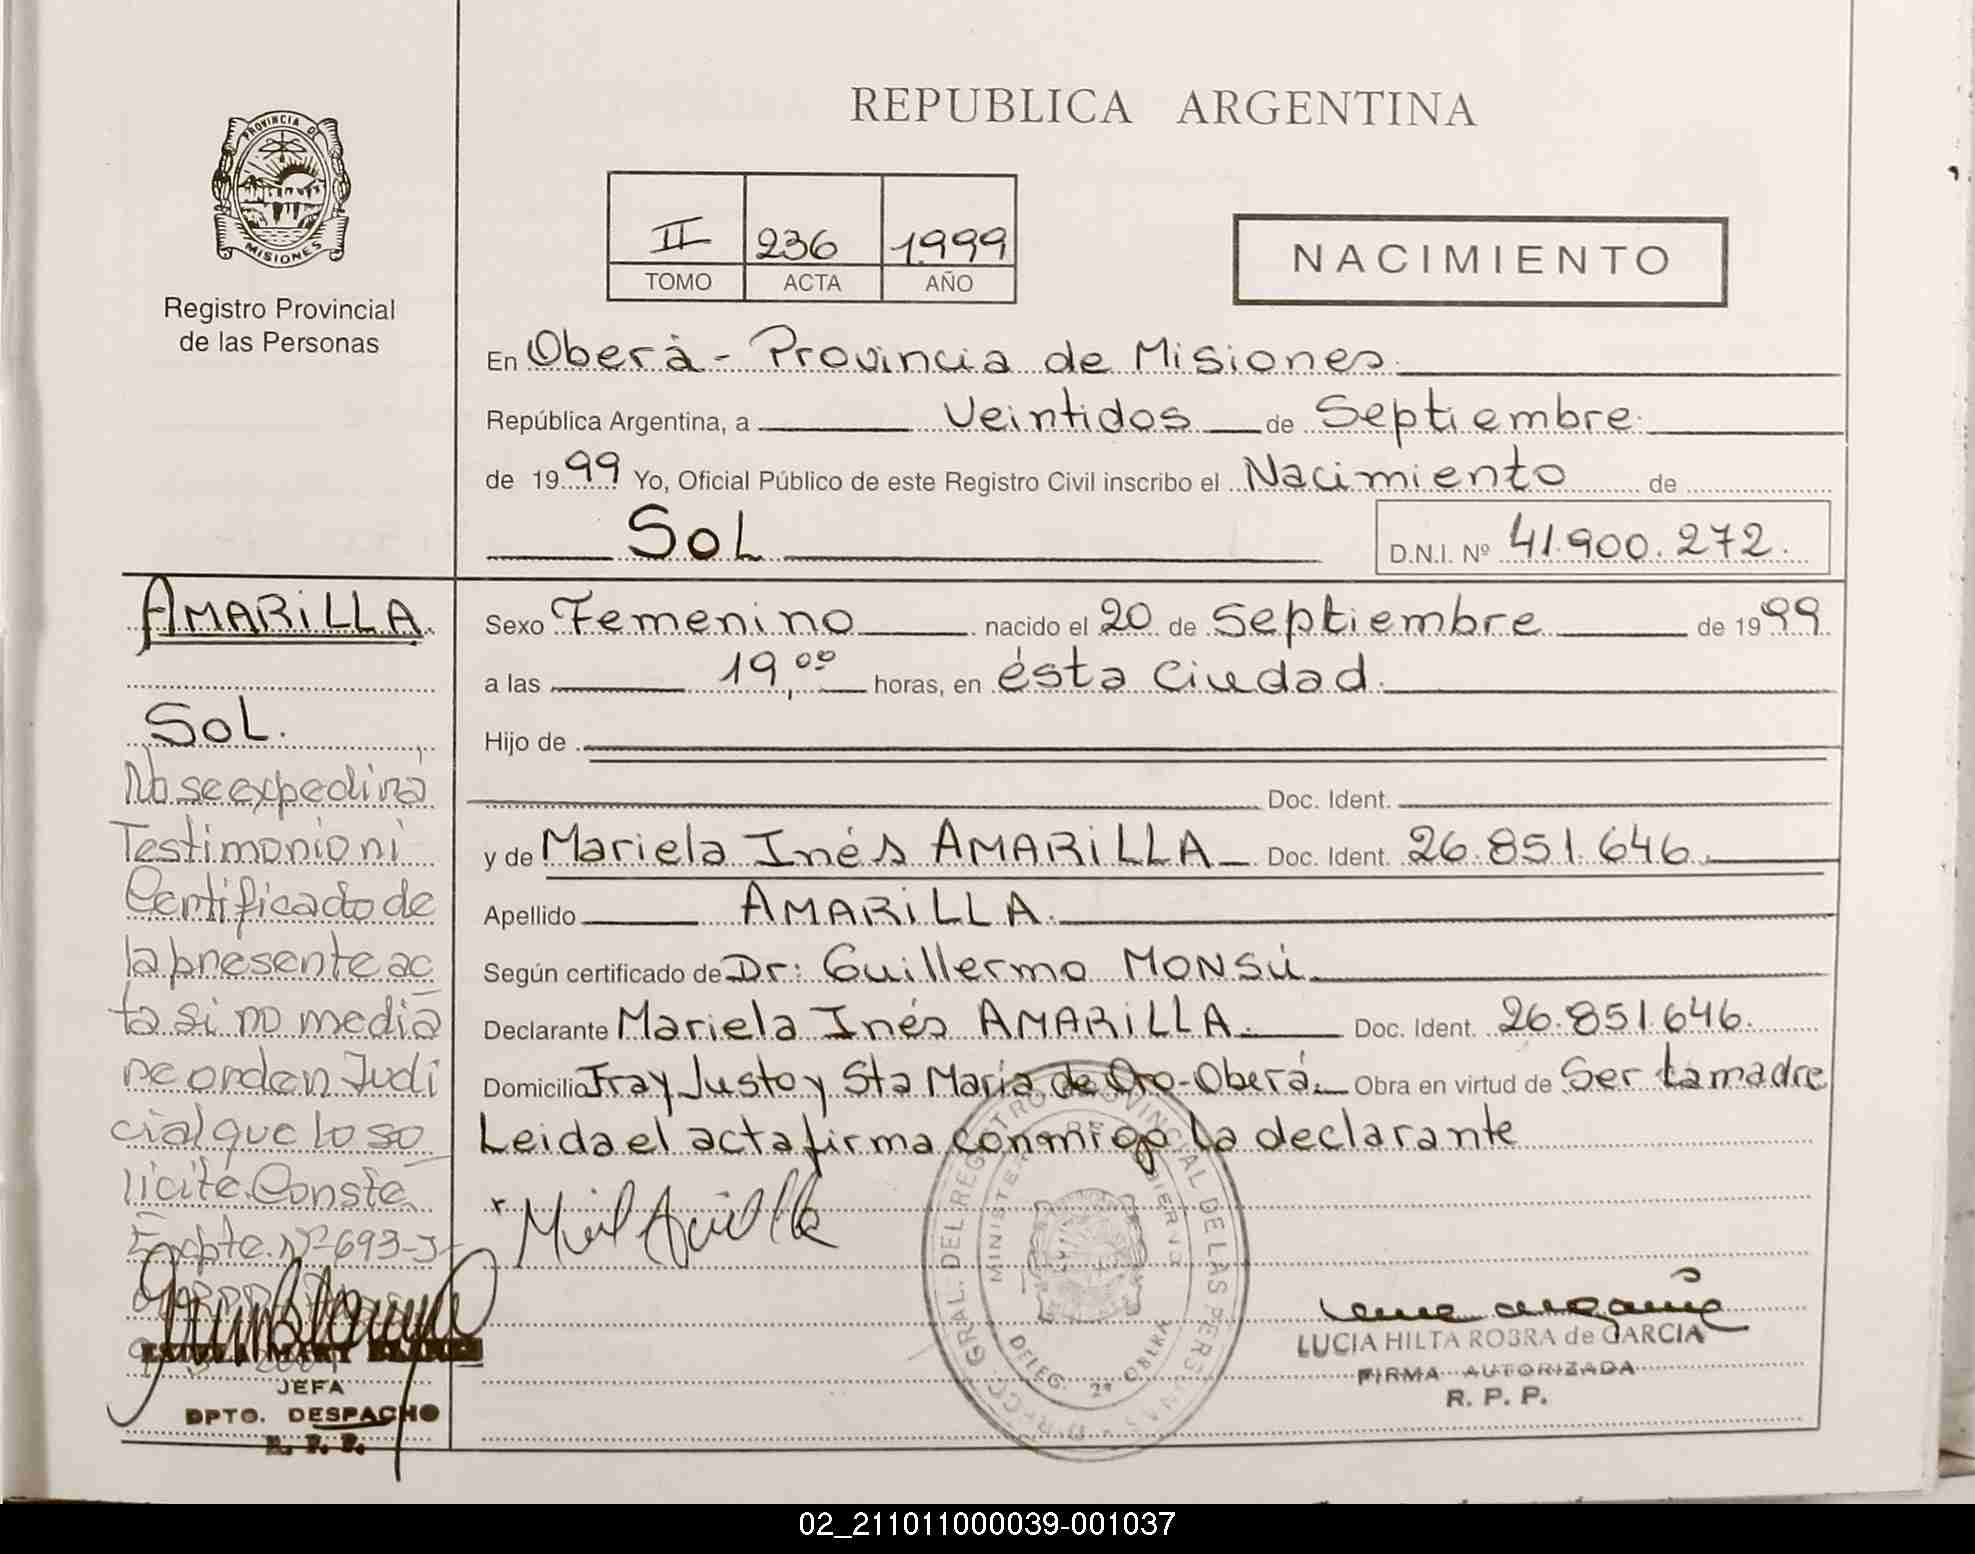 REPUBLICA ARGENTINA
PROVINCIA DE
MISIONES
Registro Provincial
de las Personas
II 236 1999
TOMO ACTA AÑO
NACIMIENTO
En Oberá - Provincia de Misiones
República Argentina, a Veintidos de Septiembre
de 1999 Yo, Oficial Público de este Registro Civil inscribo el Nacimiento de
SOL
D.N.I. Nº 41.900.272.
AMARiLLA.
SOL.
No se expedirá
Testimonio ni
Certificado de
la presente ac
ta si no media
re orden Judi
cial que lo so
licite. Conste
Expte. Nº 693-J-
JEFA
DPTO. DESPACHO
R. P. P.
Sexo Femenino nacido el 20 de Septiembre de 1999
a las 19,00 horas, en ésta Ciudad.
Hijo de
Doc. Ident.
y de Mariela Inés AMARiLLA Doc. Ident. 26.851.646.
Apellido AMARiLLA.
Según certificado de Dr: Guillermo MONSÚ
Declarante Mariela Inés AMARiLLA. Doc. Ident. 26.851.646.
Domicilio Fray Justo y Sta María de Oro-Oberá. Obra en virtud de Ser la madre
Leida el acta firma conmigo la declarante
DIRECC. GRAL. DEL REGISTRO PROVINCIAL DE LAS PERSONAS
MINISTERIO DE GOBIERNO
DELEG. 2ª OBERA
LUCIA HILTA ROBRA de GARCIA
FIRMA AUTORIZADA
R. P. P.
02_211011000039-001037